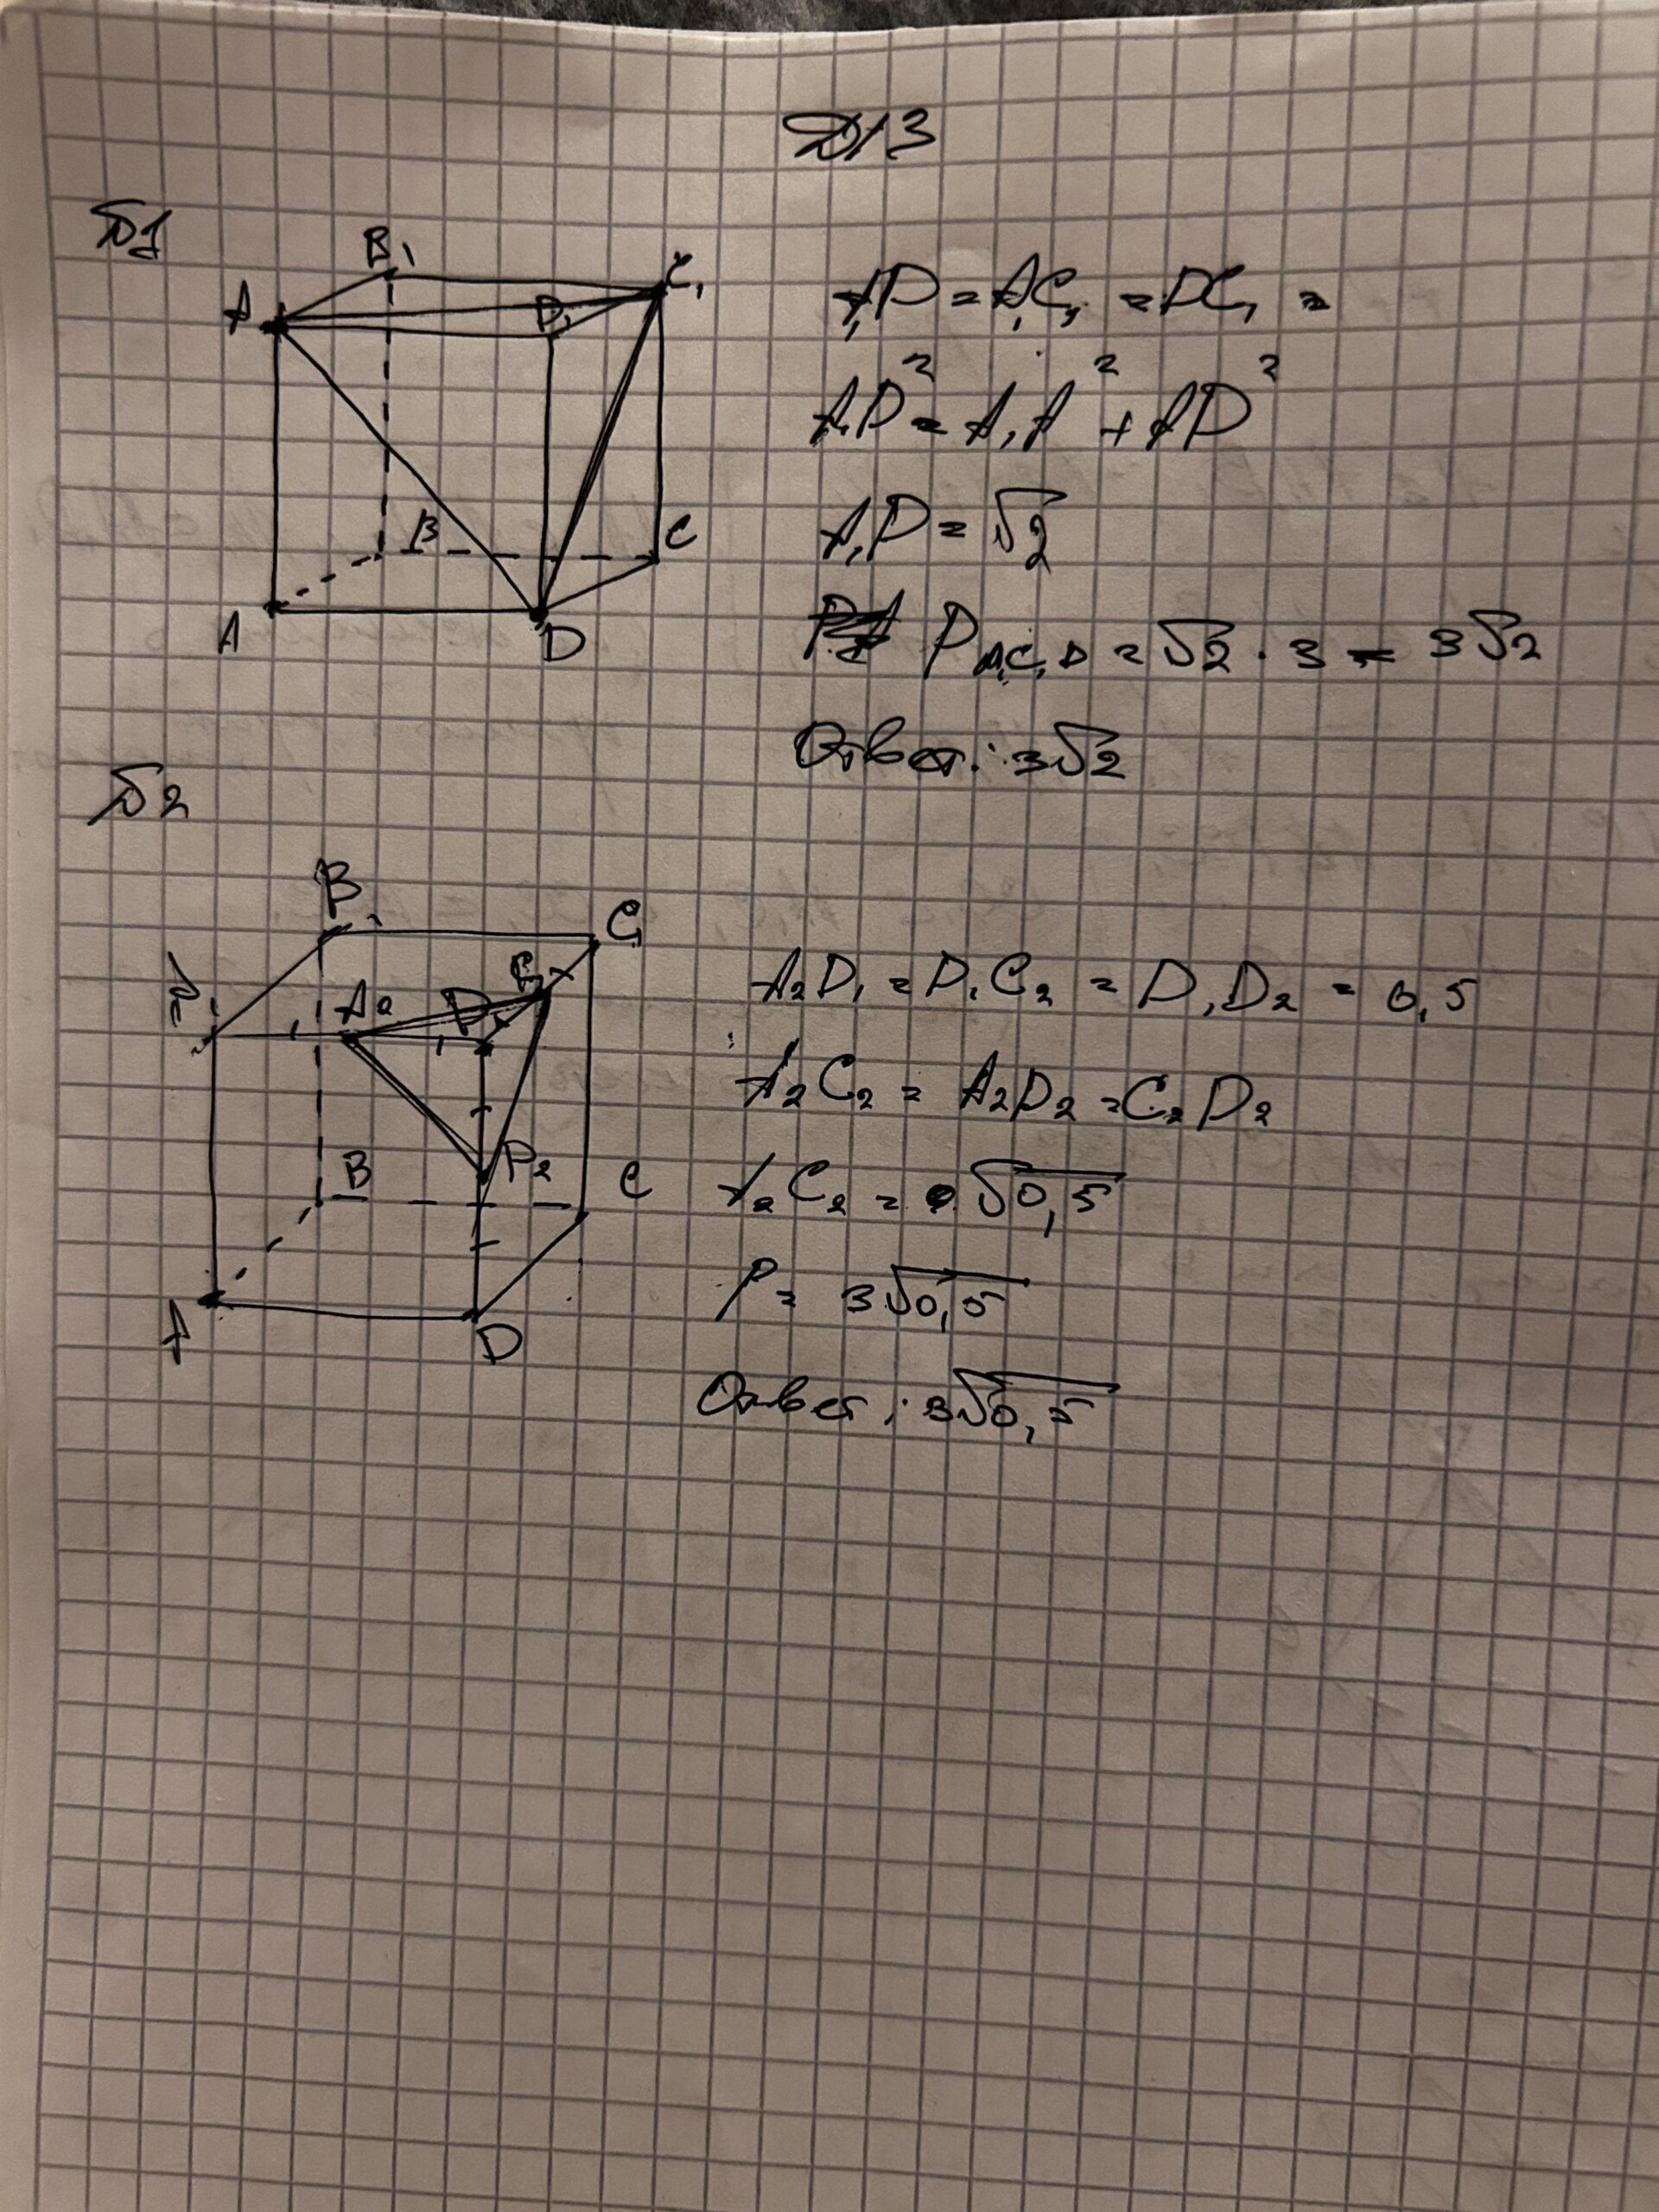 Д/З
№1
B₁
C₁
A₁
D₁
B
C
A
D
A₁D = A₁C₁ = DC₁ =
A₁D² = A₁A² + AD²
A₁D = √2
P A₁C₁D = √2 · 3 = 3√2
Ответ: 3√2
№2
B₁
C₁
A₁
A₂
D₁
C₂
D₂
B
C
A
D
A₂D₁ = D₁C₂ = D₁D₂ = 0,5
A₂C₂ = A₂D₂ = C₂D₂
A₂C₂ = √0,5
P = 3√0,5
Ответ: 3√0,5